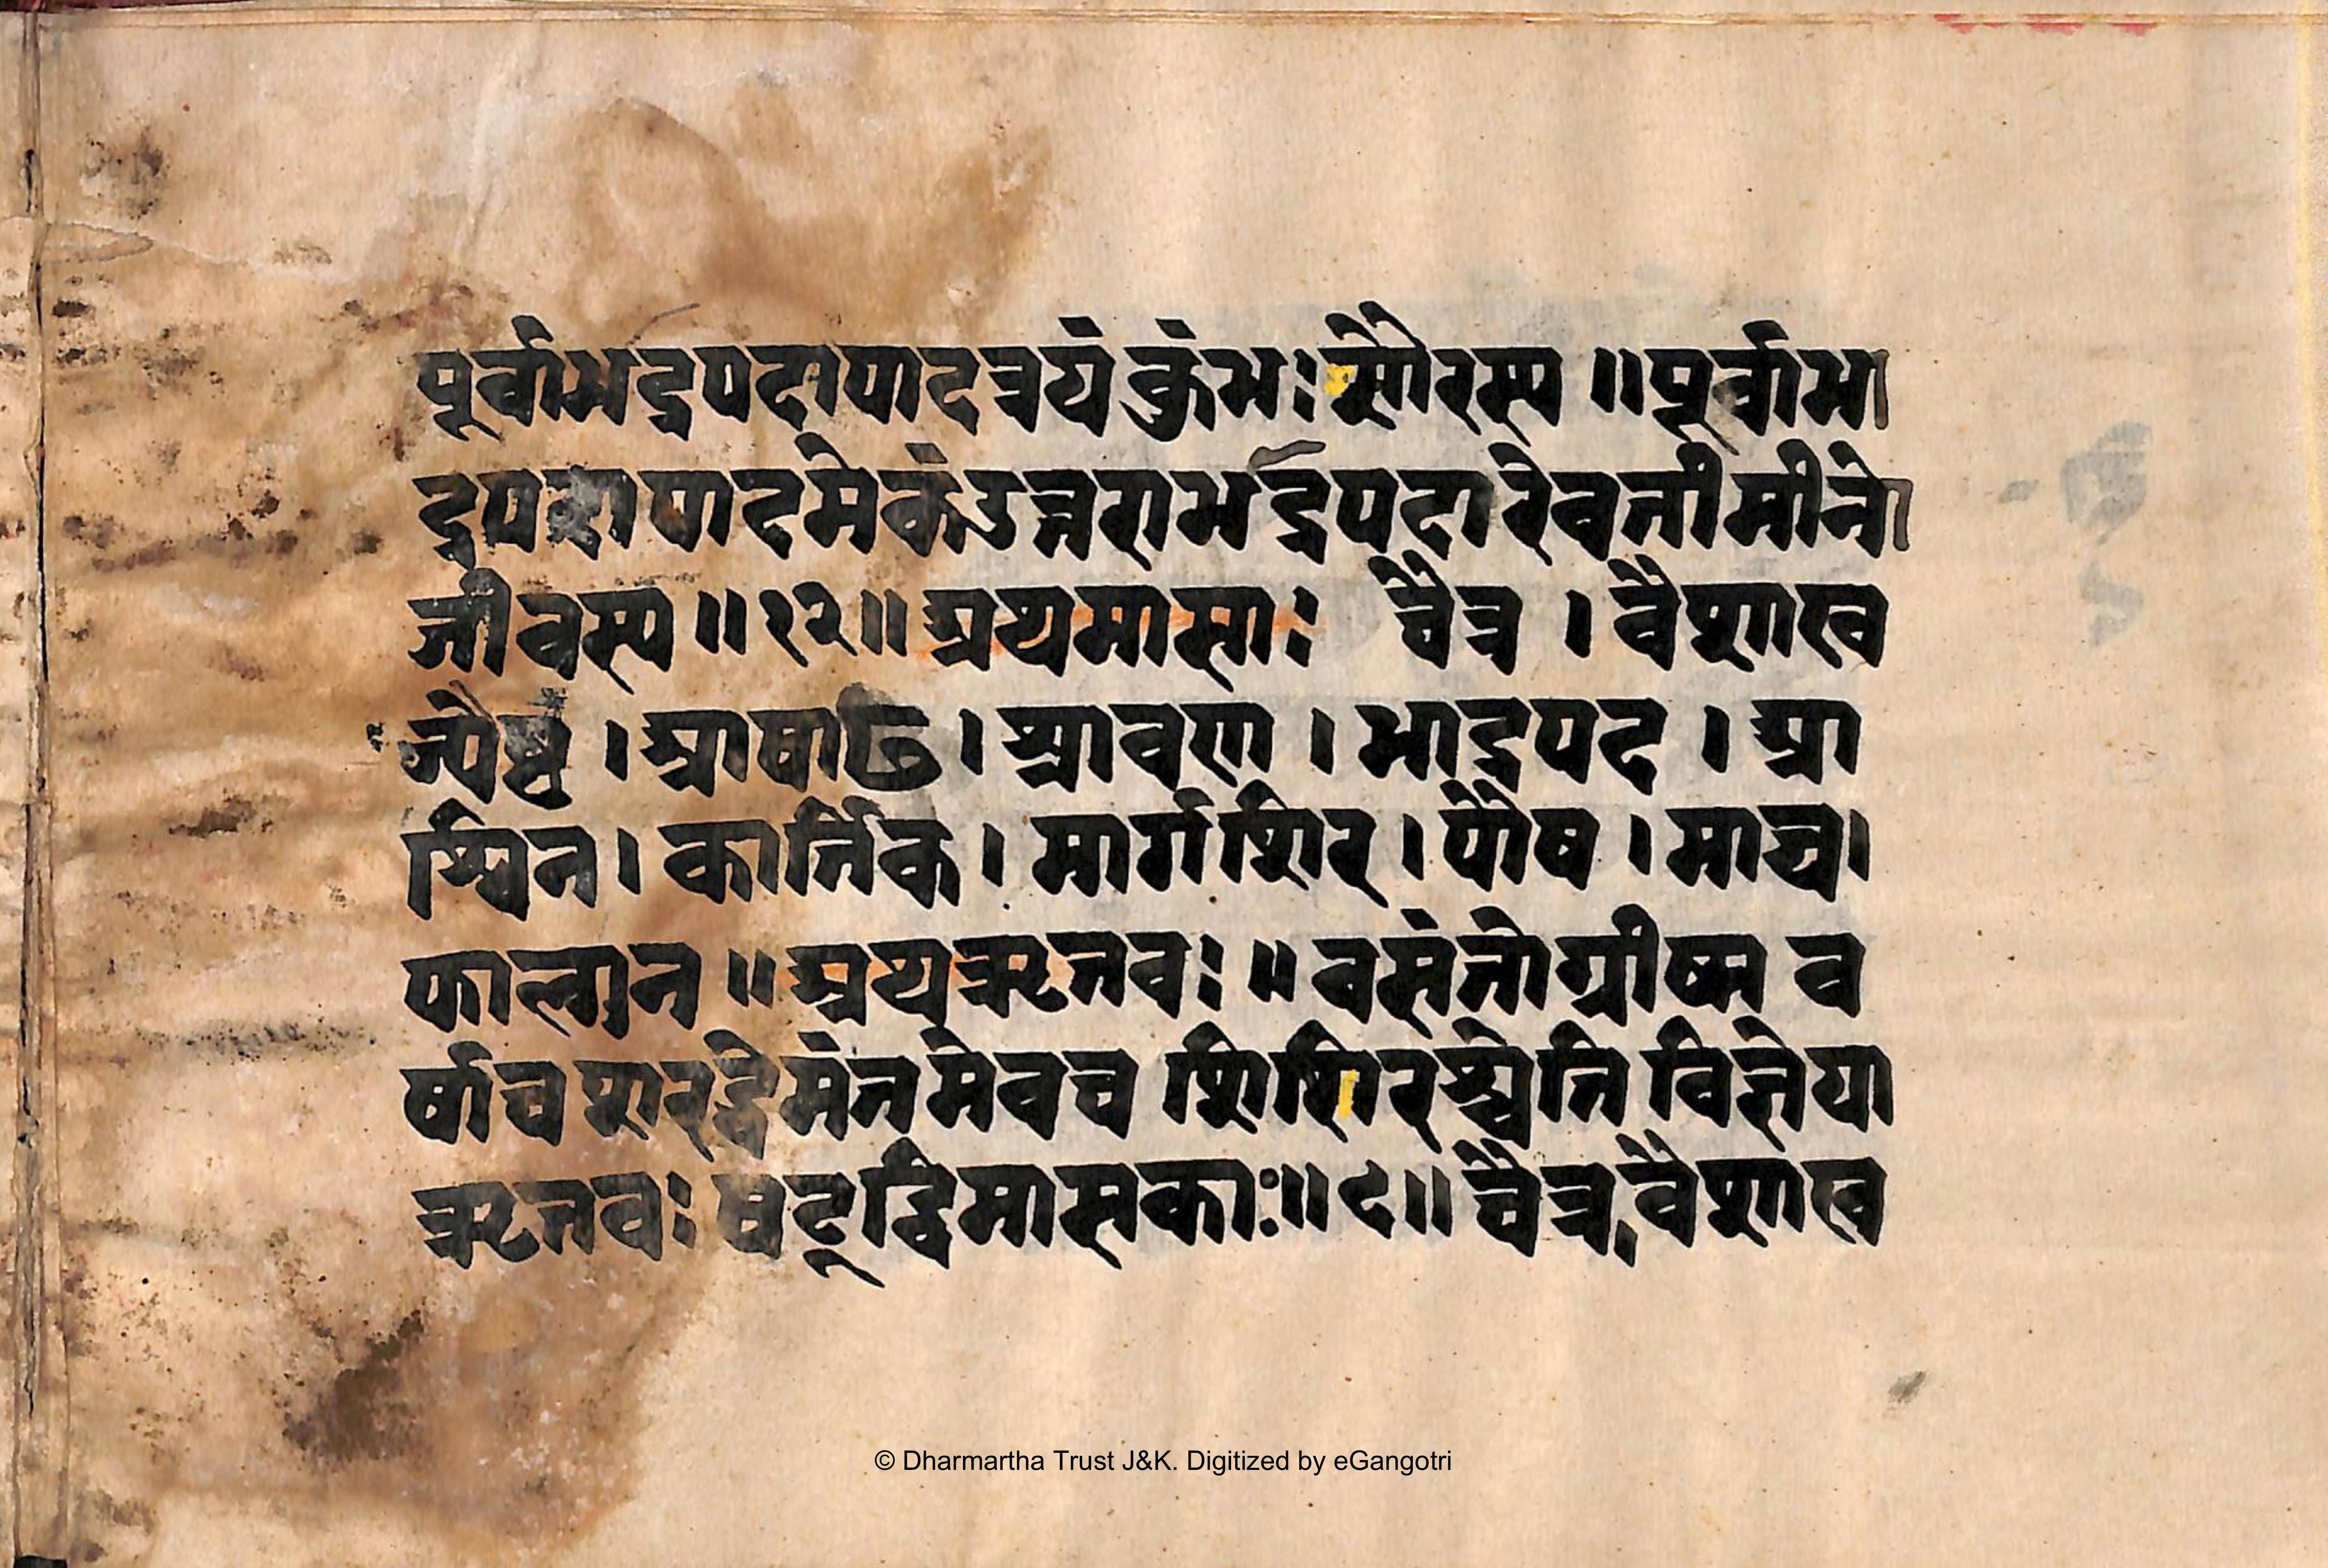 पूर्वाभद्रपदापादत्रयं कुंभः सौरस्य ॥ पूर्वाभा
द्रपदापादमेकं उत्तराभद्रपदा रेवती मीनो
जीवस्य ॥ १२ ॥ अथमासाः चैत्र । वैशाख
ज्यैष्ठ । आषाढ । श्रावण । भाद्रपद । आ
श्विन । कार्त्तिक । मार्गशिर । पौष । माघ ।
फाल्गुन ॥ अथऋतवः ॥ वसंतोग्रीष्म व
र्षाच शरद्धेमंतमेवच शिशिरश्चेति विज्ञेया
ऋतवः षट्द्विमासकाः ॥ ९ ॥ चैत्र, वैशाख
© Dharmartha Trust J&K. Digitized by eGangotri